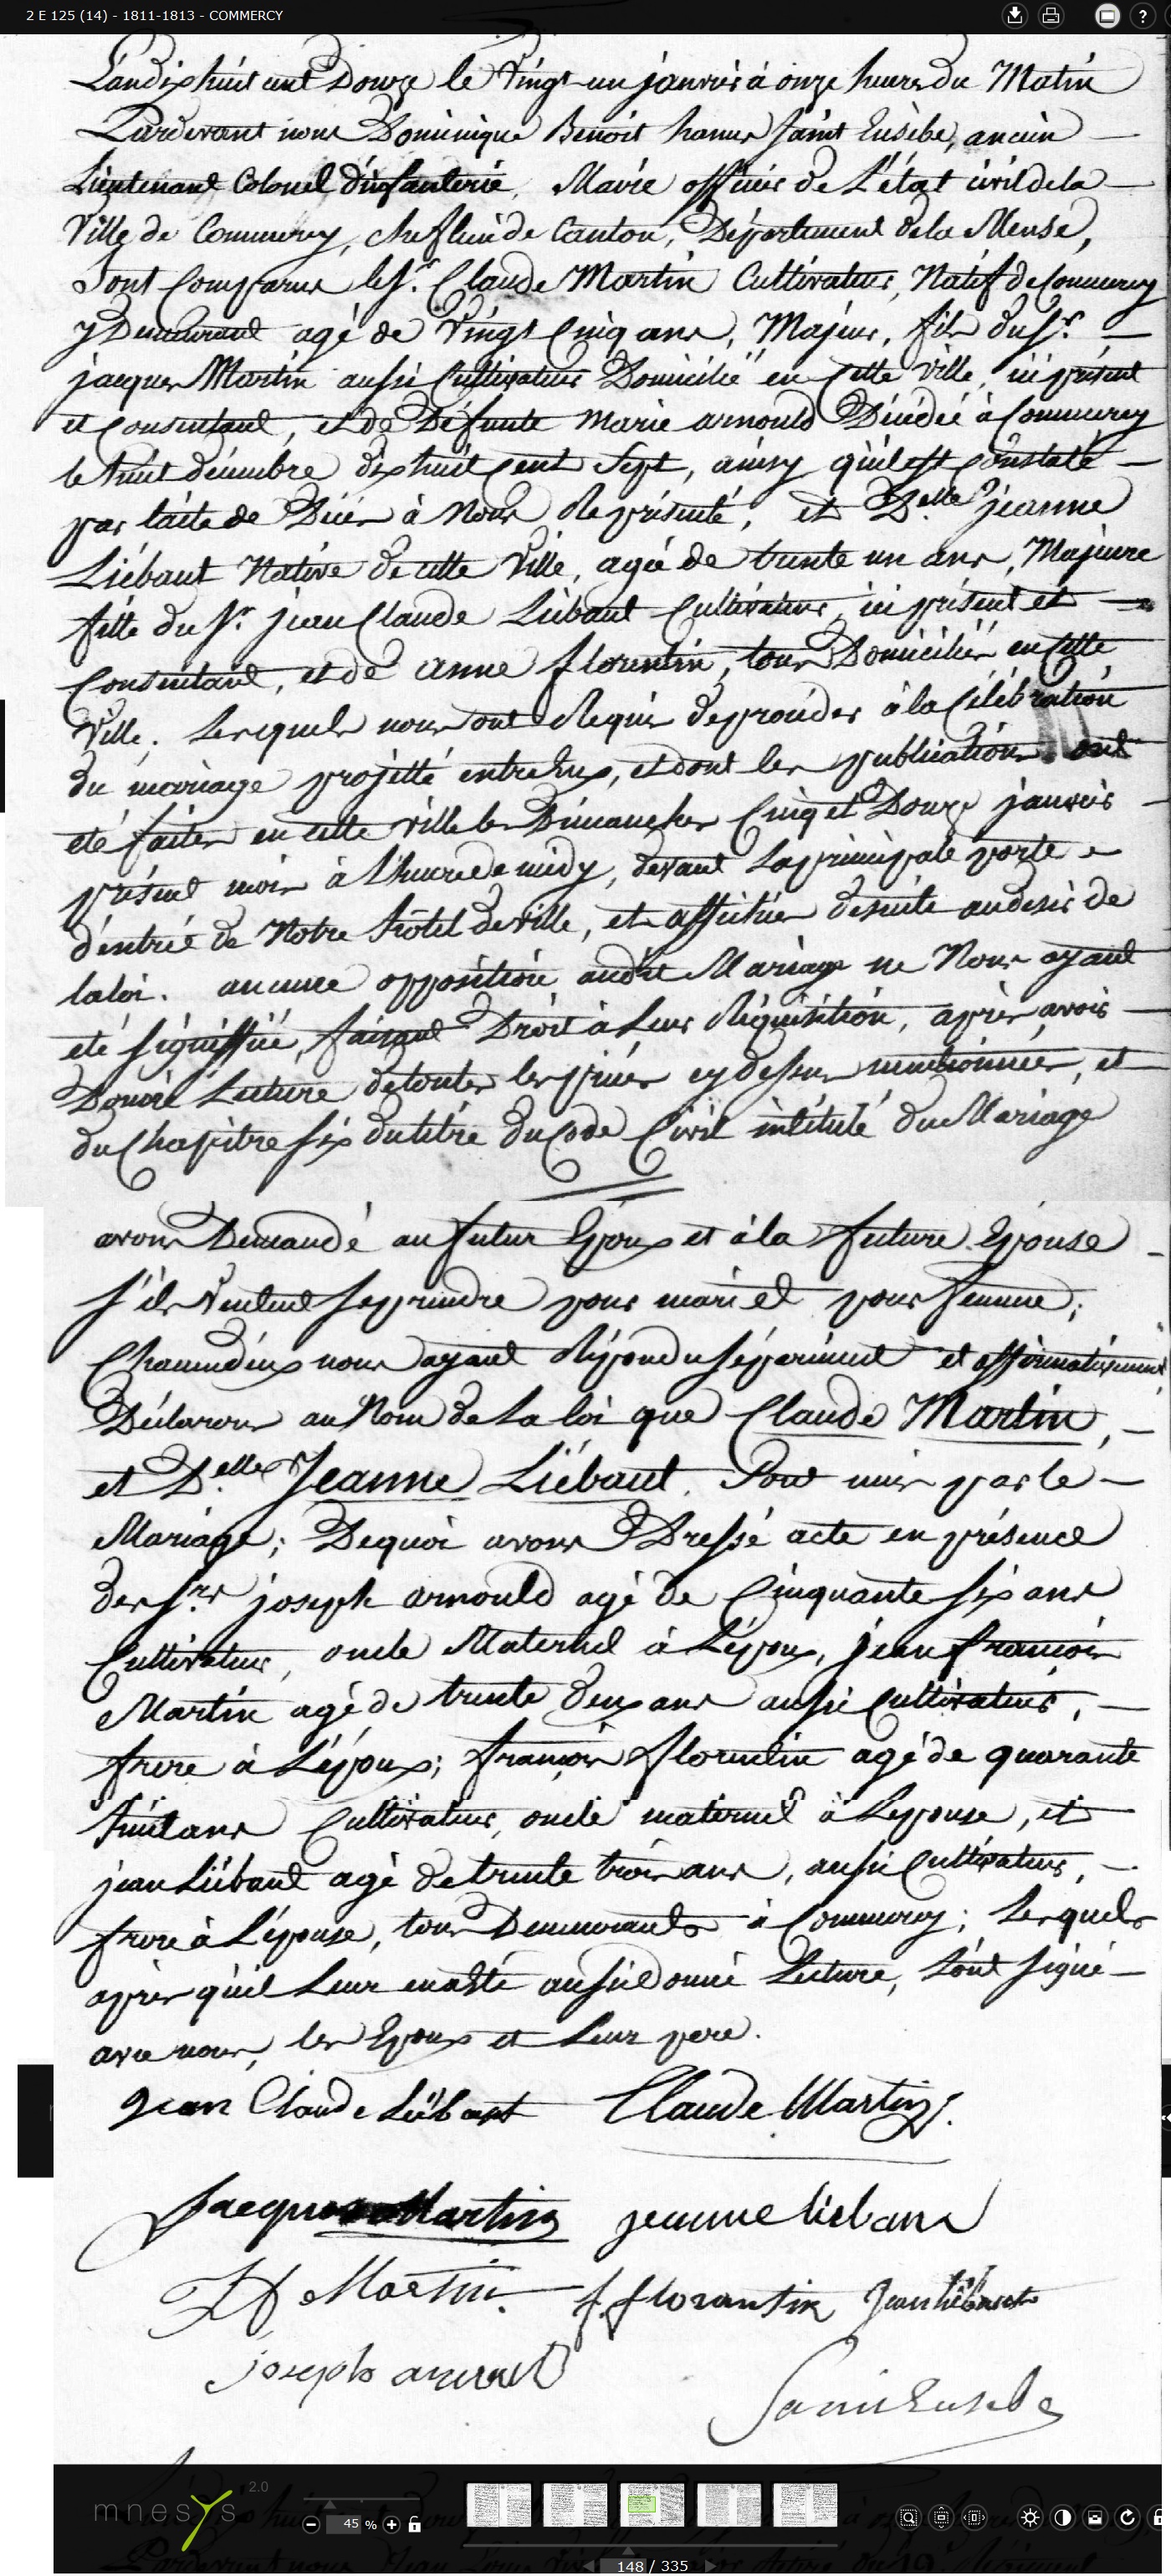 2 E 125 (14) - 1811-1813 - COMMERCY
L'an dix huit cent Douze le Vingt un janvier à onze heures du Matin
Pardevant nous Dominique Benoit hanus Saint Eusèbe, ancien
Lieutenant Colonel d'infanterie, Maire officier de L'état civil de la
Ville de Commercy, chef lieu de Canton, Département de la Meuse,
Sont Comparus le Sr. Claude Martin Cultivateur, Natif de Commercy
y Demeurant agé de Vingt Cinq ans, Majeur, fils du Sr.
jacques Martin aussi Cultivateur Domicilié en Cette Ville, ici présent
et Consentant, et de Défunte Marie arnould Décédée à Commercy
le huit décembre dix huit cent Sept, ainsy qu'il est constaté
par l'acte de Décès à Nous Représenté, et Delle jeanne
Liébaut Native de cette Ville, agée de trente un ans, Majeure
fille du Sr. jean Claude Liébaut Cultivateur, ici présent et
Consentant, et de anne florentin, tous Domiciliés en Cette
Ville. Lesquels nous ont Requis de procéder à la Célébration
du mariage projetté entre Eux, et dont les publications ont
été faites en cette ville les Dimanches Cinq et Douze janvier
présent mois à l'heure de midy, devant La principale porte
d'entrée de Notre hôtel de ville, et affichées desuite au desir de
la loi. aucune opposition audit Mariage ne Nous ayant
été signiffiée, faisant Droit à Leur Réquisition, après avoir
Donné Lecture de toutes les pièces cy dessus mentionnées, et
du Chapitre six du titre du Code Civil intitulé du Mariage
avons Demandé au futur Epoux et à la future Epouse
s'ils Veulent Se prendre pour mari et pour femme;
Chacun d'eux nous ayant Répondu séparément et affirmativement
Déclarons au Nom de La loi que Claude Martin,
et Delle Jeanne Liébaut. Sont unis par le
Mariage; De quoi avons Dressé acte en présence
des Srs joseph arnould agé de Cinquante six ans
Cultivateur, oncle Maternel à L'époux, jean françois
Martin agé de trente deux ans aussi Cultivateur,
frere à L'époux; françois florentin agé de quarante
huit ans Cultivateur, oncle maternel à L'epouse, et
jean Liébaut agé de trente trois ans, aussi Cultivateur,
frere à L'épouse, tous Demeurants à Commercy; Lesquels
après qu'il Leur en a été aussi donné Lecture, L'ont signé
avec nous, les Epoux et Leur pere.
Jean Claude Liébaut Claude Martin
Jacques Martin jeanne liebaut
J f Martin. f. florantin Jean liébaut
joseph arnould
Saint Eusebe
mnesys 2.0
45 %
148 / 335